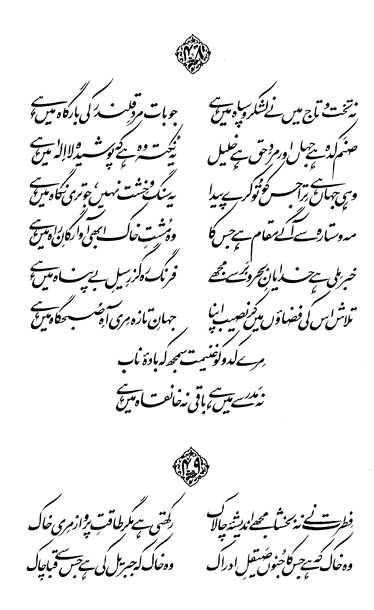 ۴۸
نہ تخت و تاج میں نے لشکر و سپاہ میں ہے جو بات مردِ قلندر کی بارگاہ میں ہے
صنم کدہ ہے جہاں اور مردِ حق ہے خلیل یہ نکتہ وہ ہے کہ پوشیدہ لاالٰہ میں ہے
وہی جہاں ہے ترا جس کو تو کرے پیدا یہ سنگ و خشت نہیں، جو تری نگاہ میں ہے
مہ و ستارہ سے آگے مقام ہے جس کا وہ مشتِ خاک ابھی آوارگانِ راہ میں ہے
خبر ملی ہے خدایانِ بحر و بر سے مجھے فرنگ رہ گزرِ سیلِ بے پناہ میں ہے
تلاش اس کی فضاؤں میں کر نصیب اپنا جہانِ تازہ مری آہِ صبح گاہ میں ہے
مرے کدو کو غنیمت سمجھ کہ بادۂ ناب
نہ مدرسے میں ہے باقی نہ خانقاہ میں ہے
۴۹
فطرت نے نہ بخشا مجھے اندیشۂ چالاک رکھتی ہے مگر طاقتِ پرواز مری خاک
وہ خاک کہ ہے جس کا جنوں صیقلِ ادراک وہ خاک کہ جبریل کی ہے جس سے قبا چاک